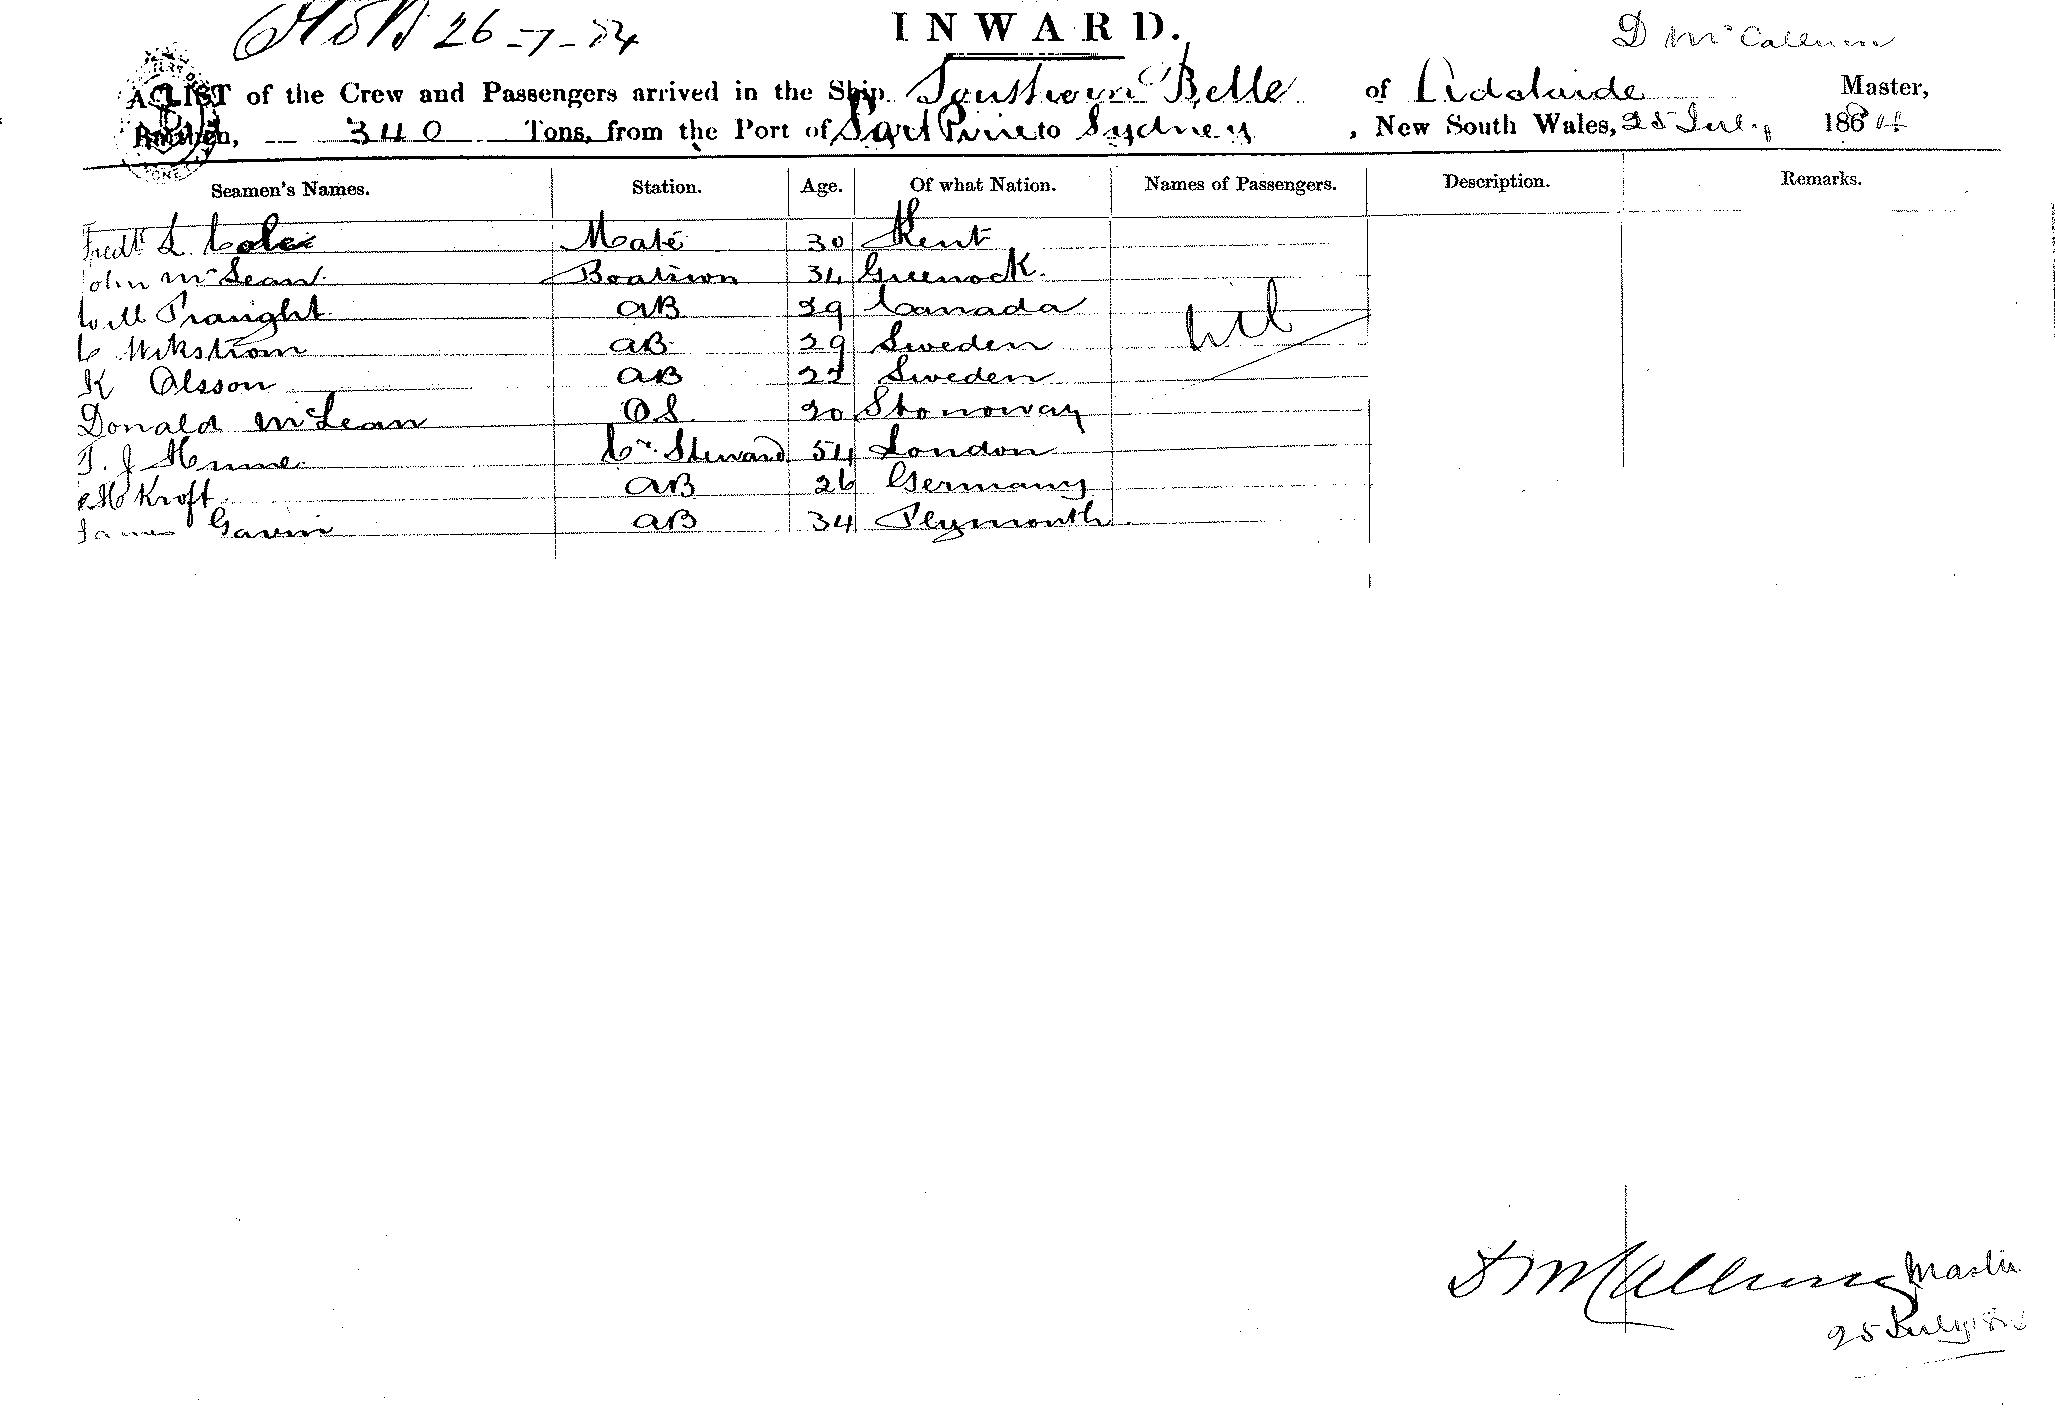 26-7-84
INWARD.
D McCallum
A LIST of the Crew and Passengers arrived in the Ship Southern Belle of Adelaide Master,
Burthen, 340 Tons, from the Port of Port Pirie to Sydney, New South Wales, 25 July 1884
Seamen's Names. Station. Age. Of what Nation. Names of Passengers. Description. Remarks.
Fredk L Coles Mate 30 Kent
John McLean Boatswn 34 Greenock.
Will Praught AB 29 Canada
C Wikstrom AB 29 Sweden
K Olsson AB 22 Sweden
Donald McLean OS 20 Stonoway
T. J Hume Ck Steward 54 London
Kroft AB 26 Germany
James Gavin AB 34 Plymouth
D McCallum Master
25 July